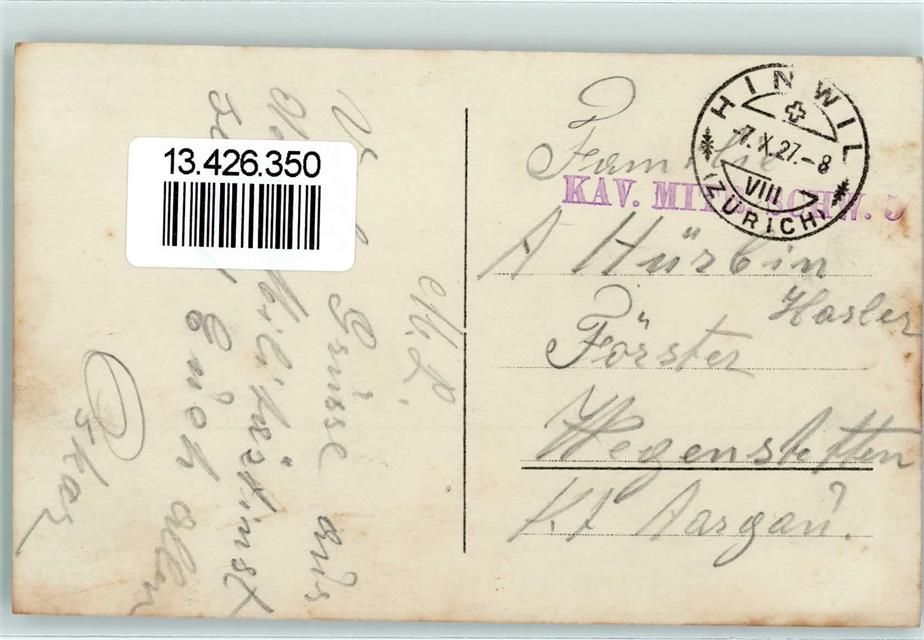 M. L.
Grüsse aus
Militärdinst
Euch allen
Oskar
13.426.350
HINWIL
7.X.27.-8
VIII
(ZÜRICH)
KAV. MITR. SCHW. 5
Familie
A Hürbin
Hasler
Förster
Wegenstetten
Kt Aargau.